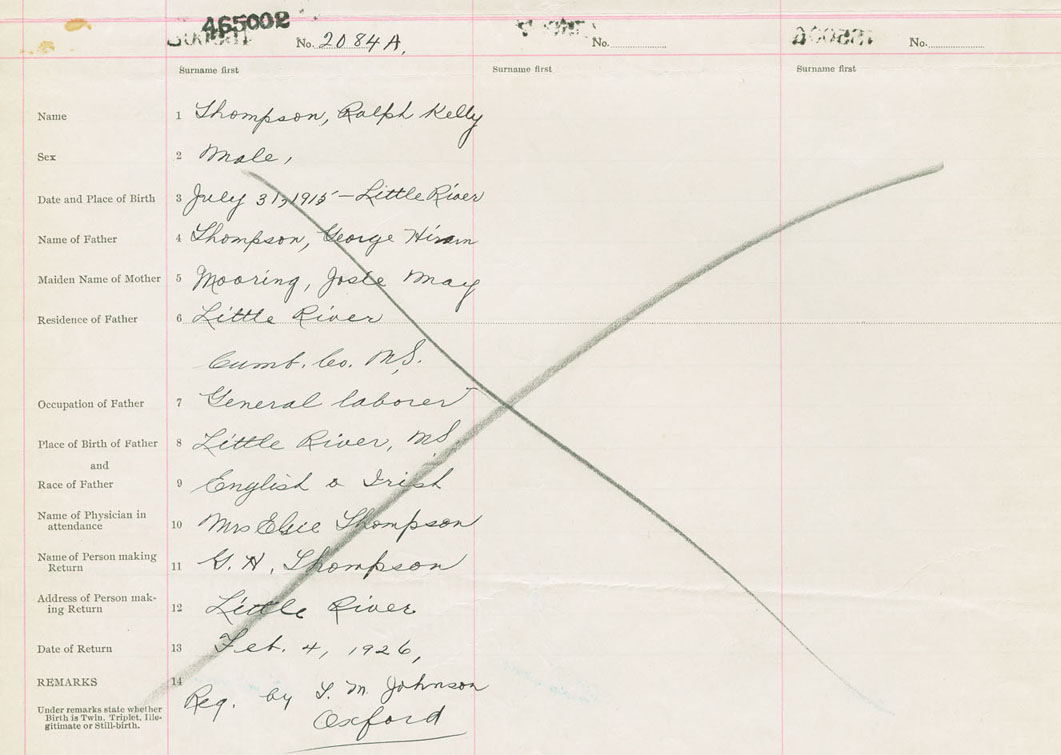 465002
No. 2084A.
No.
No.
Surname first
Surname first
Surname first
Name 1 Thompson, Ralph Kelly
Sex 2 Male,
Date and Place of Birth 3 July 31, 1915 - Little River
Name of Father 4 Thompson, George Hiram
Maiden Name of Mother 5 Mooring, Josie May
Residence of Father 6 Little River
Cumb. Co. N.S.
Occupation of Father 7 General laborer
Place of Birth of Father 8 Little River, N.S.
and
Race of Father 9 English & Irish
Name of Physician in
attendance 10 Mrs Elsie Thompson
Name of Person making
Return 11 G. H. Thompson
Address of Person mak-
ing Return 12 Little River
Date of Return 13 Feb. 4, 1926,
REMARKS 14
Reg. by T. M. Johnson
Oxford
Under remarks state whether
Birth is Twin, Triplet, Ille-
gitimate or Still-birth.